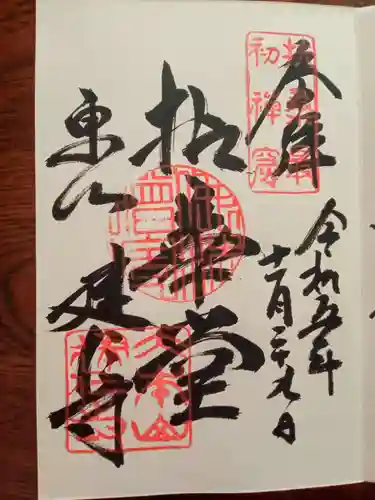 奉拝
扶桑最
初禅窟
令和五年
十一月二十九日
拈華堂
東山 建仁寺